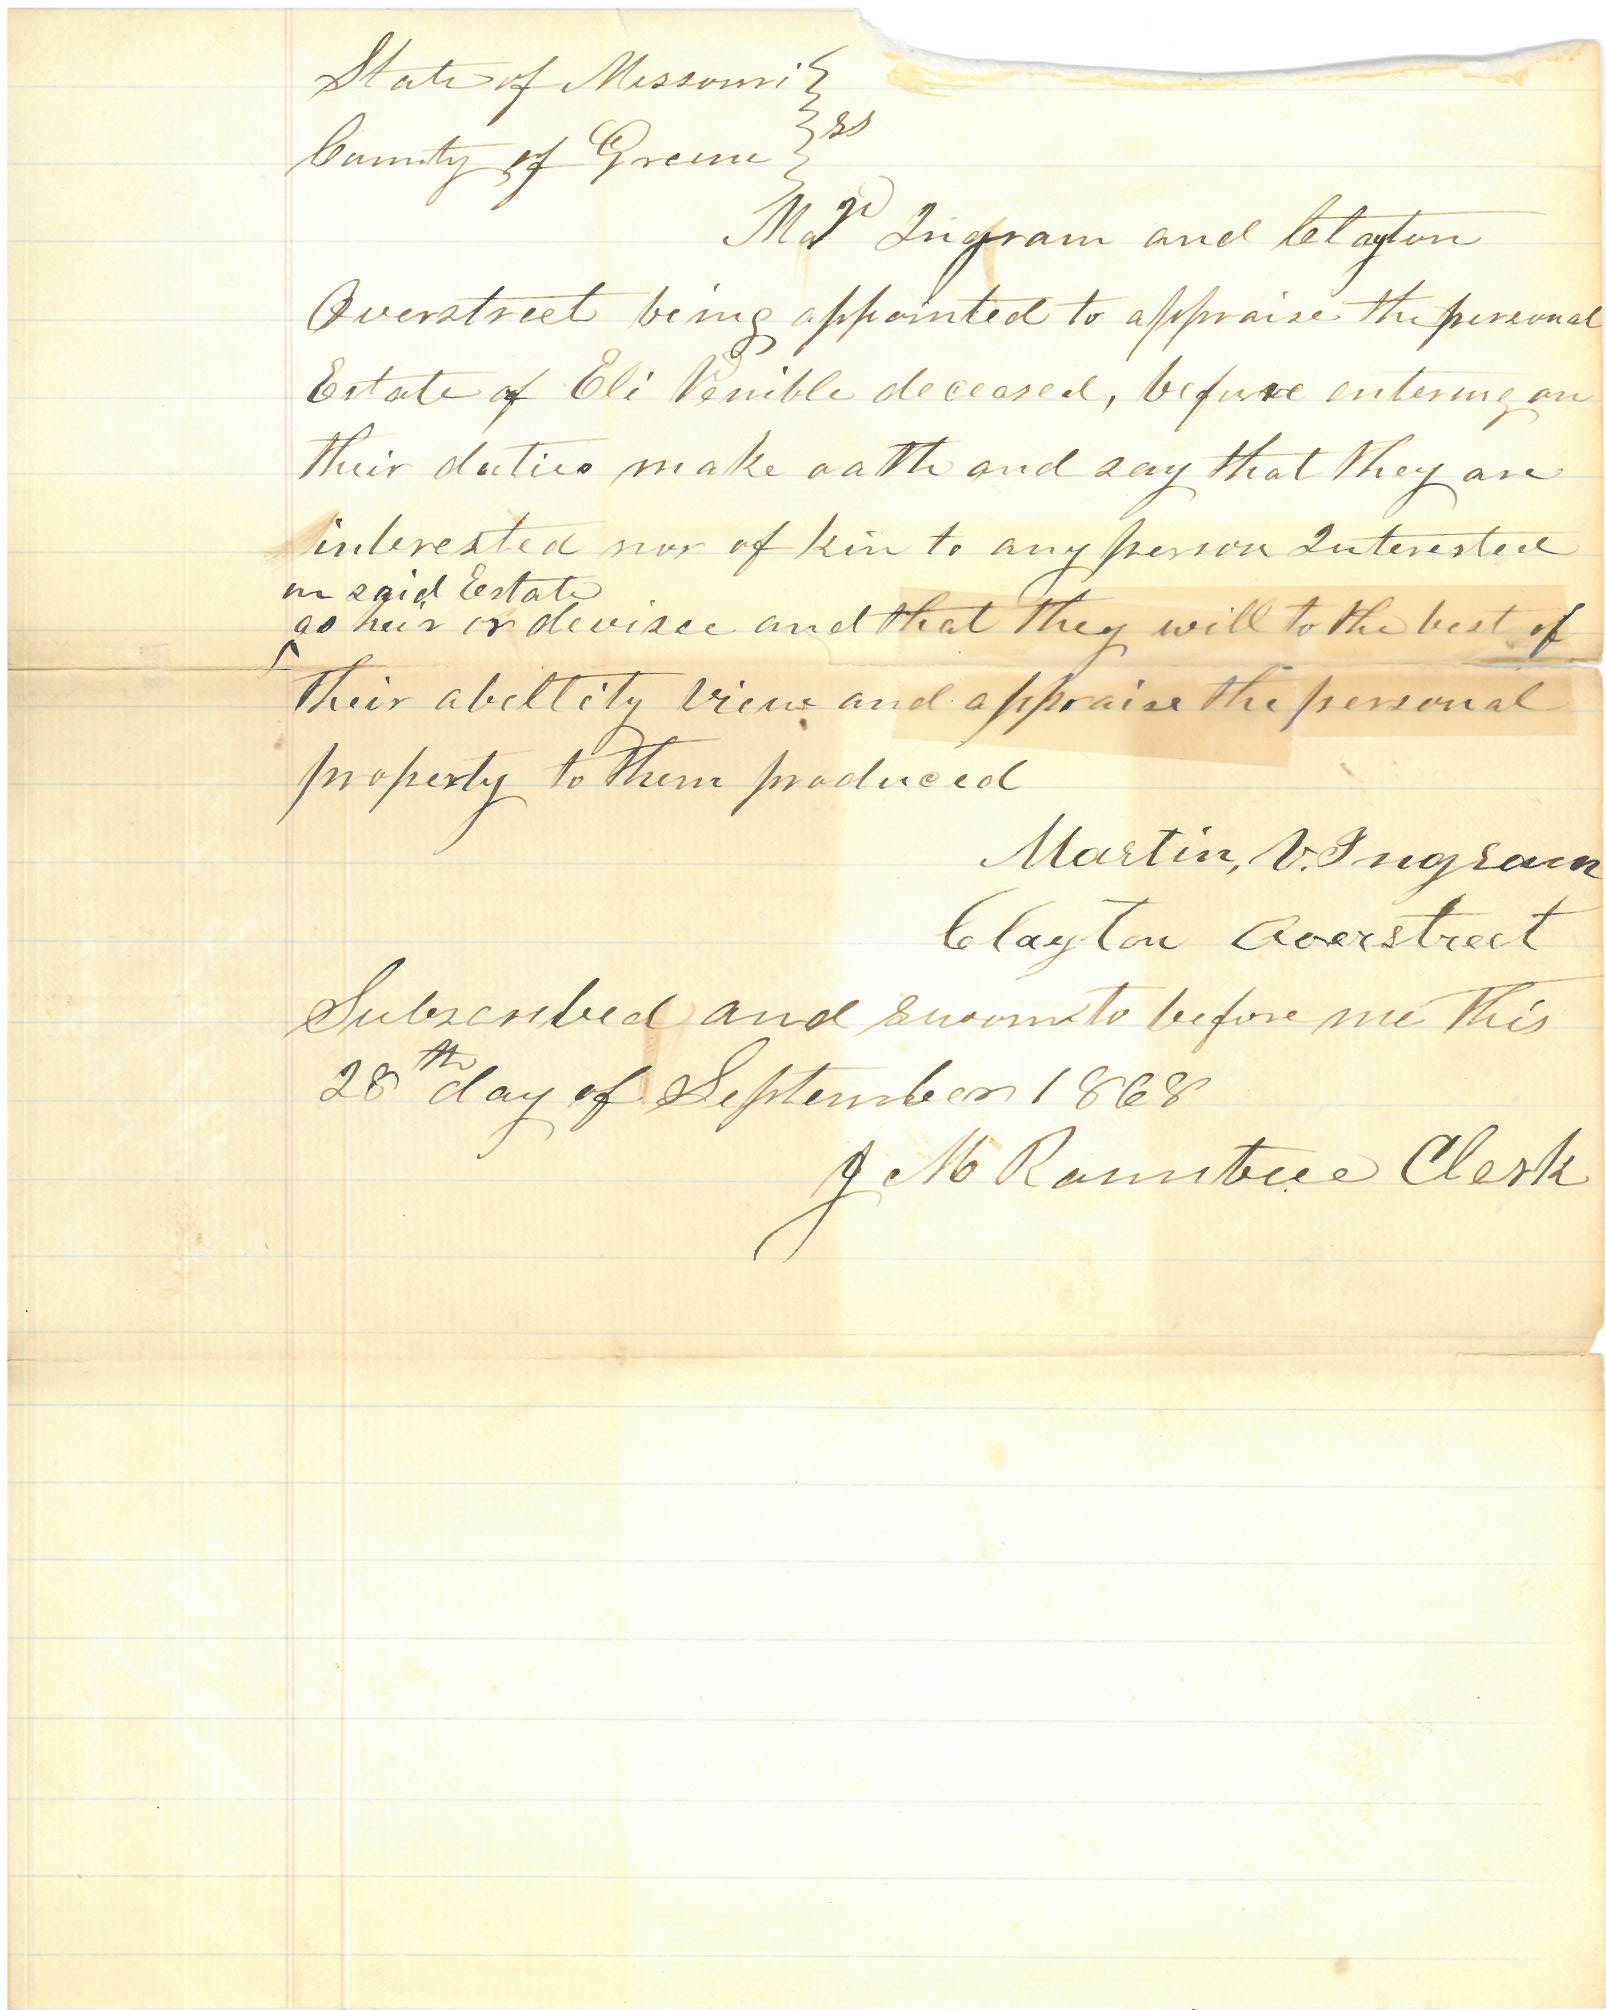 State of Missouri }
County of Greene } ss
Ingram and Clayton
Overstreet being appointed to appraise the personal
Estate of Eli Venible deceased, before entering on
their duties make oath and say that they are
interested nor of kin to any person Interested
in said Estate
as heir or devisee and that they will to the best of
their abeltity view and appraise the personal
property to them produced
Martin, V. Ingram
Clayton Overstreet
Subscribed and sworn to before me this
28th day of September 1868
J M Rountree Clerk